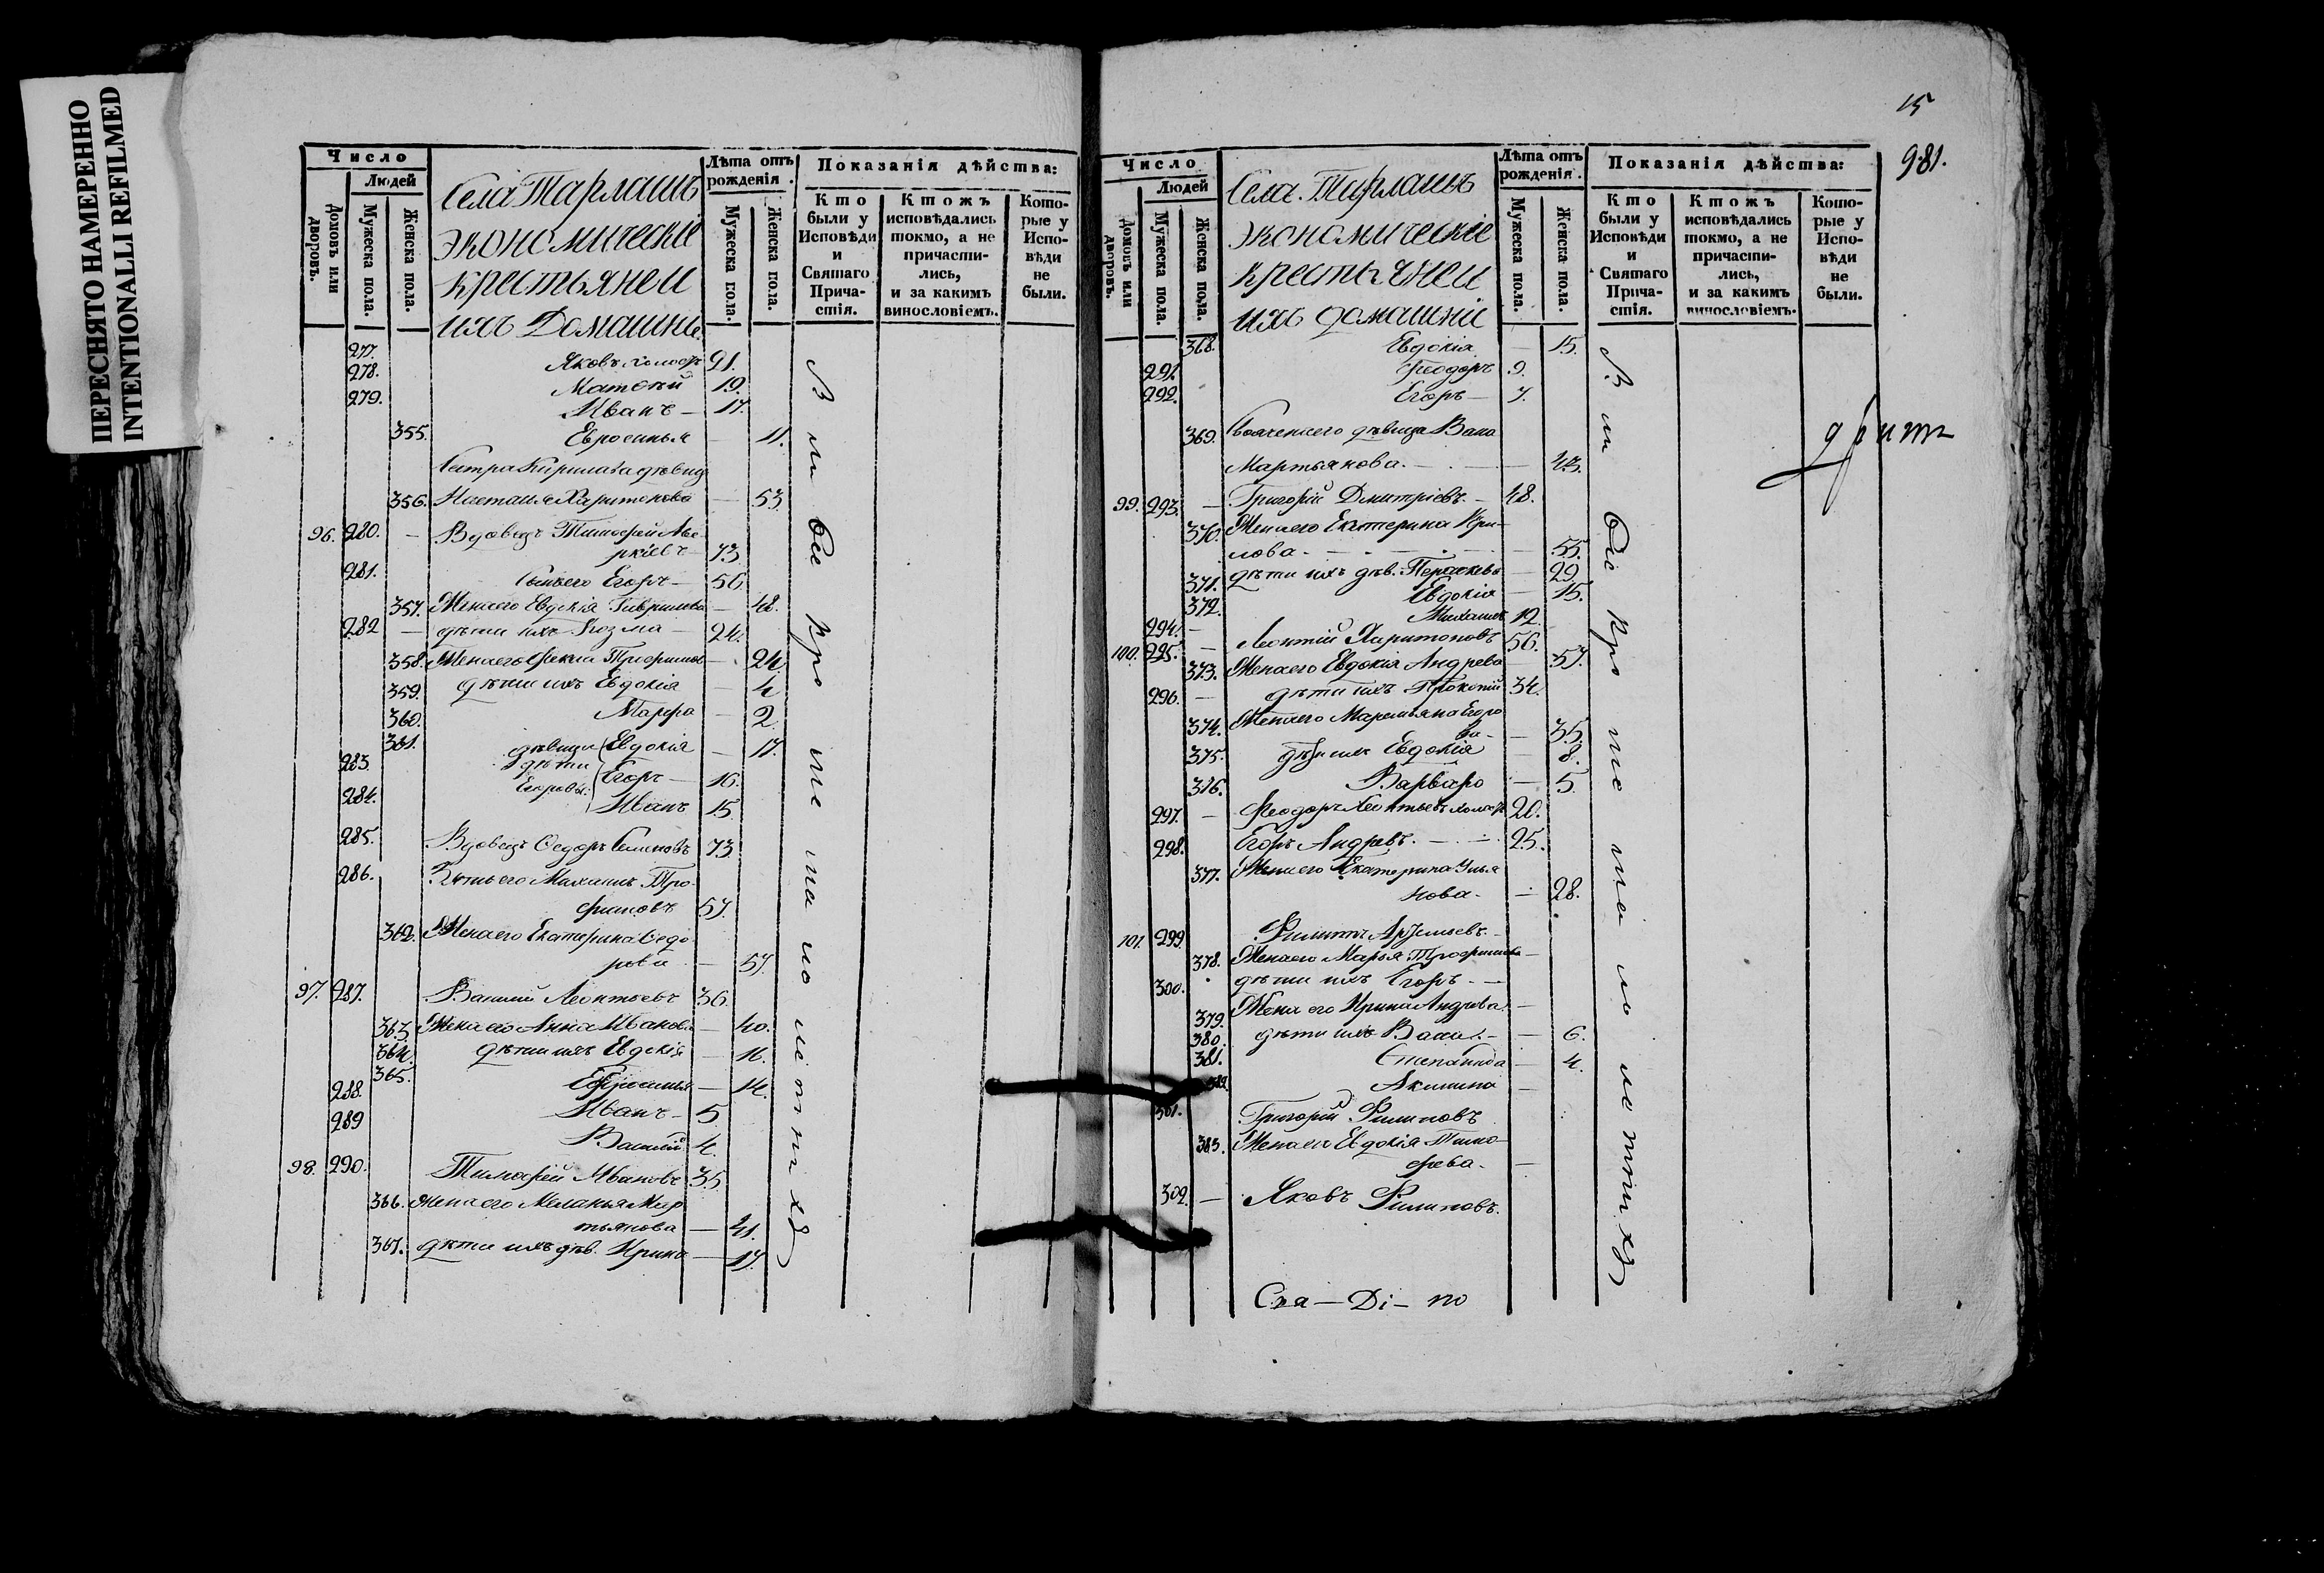 ПЕРЕСНЯТО НАМЕРЕННО
INTENTIONALLI REFILMED
Число
Людей
Домовъ или дворовъ.
Мужеска пола.
Женска пола.
Села Тарлашъ
экономическіе
крестьяне и
ихъ Домашніе.
Лѣта отъ рожденія.
Мужеска пола.
Женска пола.
Показанія дѣйства:
Кто были у Исповѣди и Святаго Причастія.
Ктожъ исповѣдались токмо, а не причастились, и за какимъ винословіемъ.
Которые у Исповѣди не были.
277. Яковъ холостъ 21.
278. Матвѣй 19.
279. Иванъ — 17.
355. Евросинья — 11.
Сестра Кирилова дѣвица
356. Настасья Харитонова — 53
96. 280. — Вдовецъ Тимофей Аве-
ркіевъ — 73
281. Сынъ его Егоръ — 56
357. Жена его Евдокія Гаврилова — 48.
282 — дѣти ихъ Козма — 24.
358. Жена его Фекла Трофимов — 24
359. дѣти ихъ Евдокія — 4
360. Марфа — 2
361. дѣвица Евдокія — 17.
283. дѣти Егоръ — 16.
284. Егоровы: Иванъ 15
285. Вдовецъ Ѳедоръ Семеновъ 73
286. Зять его Михаилъ Тро-
фимовъ 57.
362. Жена его Екатерина Ѳедо
рова — 57
97. 287. Василій Леонтьевъ 36.
363. Жена его Анна Иванова — 40.
364. дѣти ихъ Евдокія — 16.
365. Евросинья — 14.
288. Иванъ — 5
289 Василій 4.
98. 290. Тимофей Ивановъ 35
366. Жена его Меланья Мар
тьянова — 41.
367. дѣти ихъ дѣв. Ирина — 17.
15
981.
Число
Людей
Домовъ или дворовъ.
Мужеска пола.
Женска пола.
Села. Тарлашъ
экономическіе
крестьяне и
ихъ домашніе
Лѣта отъ рожденія.
Мужеска пола.
Женска пола.
Показанія дѣйства:
Кто были у Исповѣди и Святаго Причастія.
Ктожъ исповѣдались токмо, а не причастились, и за какимъ винословіемъ.
Которые у Исповѣди не были.
368. Евдокія — 15.
291. Феодоръ 9.
292. Егоръ — 7.
369. дѣвица Васа
Мартьянова. — 43.
99. 293. — Григорій Дмитріевъ. — 48.
370. Жена его Екатерина Кри-
лова — 55.
371. дѣти ихъ дѣв. Перасковья — 29
372. Евдокія — 15.
294. — Михаилъ 12.
100. 295. — Леонтій Харитоновъ 56.
373. Жена его Евдокія Андрева — 57.
296. — дѣти ихъ Прокопій 34.
374. Жена его Маремьяна Егоро
ва — 35.
375. дѣти ихъ Евдокія — 8.
376. Варвара — 5.
297. — Феодоръ Леонтьевъ холостъ 20.
298. Егоръ Андревъ. — 25.
377. Жена его Екатерина Улья
нова — 28.
101. 299. Филиппъ
378. Жена его Марья Трофимова —
300. дѣти ихъ Егоръ —
379. Жена его Ирина Андрева —
380. дѣти ихъ Васа — 6.
381. Степанида — 4.
382. Акилина —
301. Григорій Филиповъ
383. Жена его Евдокія Тимо-
феева —
302. — Яковъ Филиповъ.
Сва — Ді — по